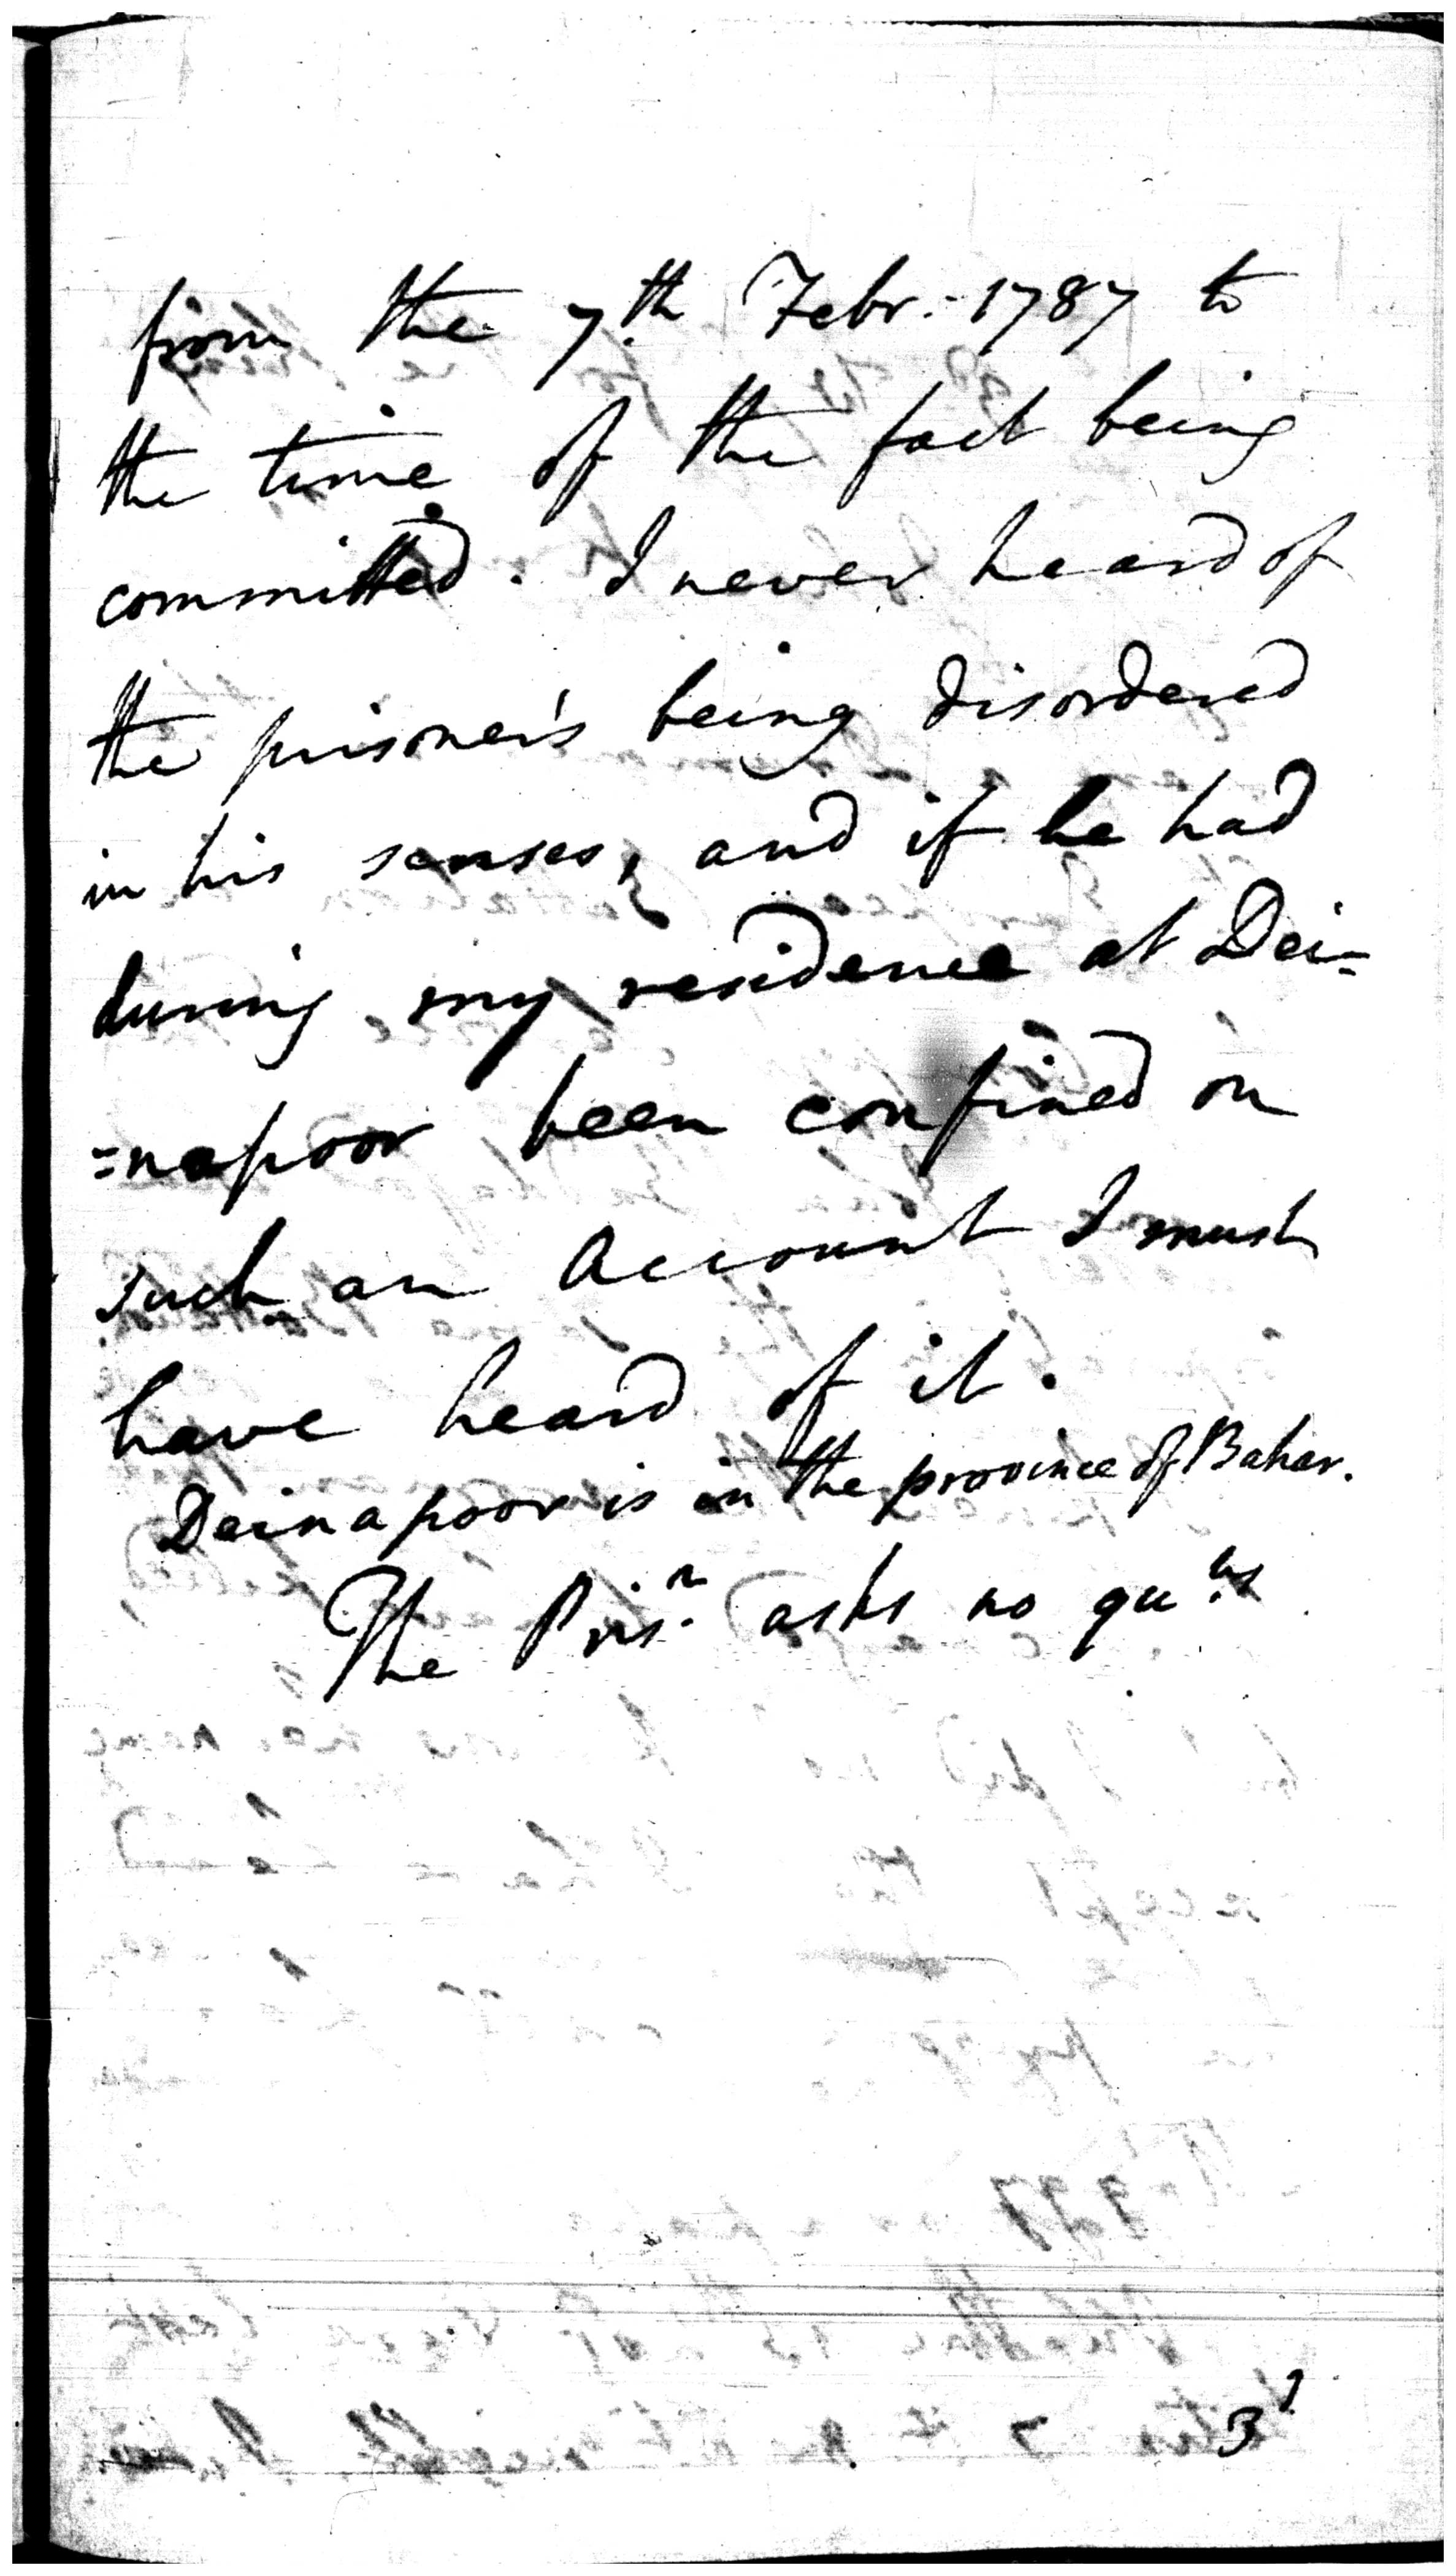 from the 7.th Febr: 1787 to
the time of the fact being
committed. I never heard of
the prisoner's being disordered
in his senses, and if he had
during my residence at Dei=
=napoor been confined on
such an Account I must
have heard of it.
Deinapoor is in the province of Bahar.
The Pris.r asks no qu.ns
3